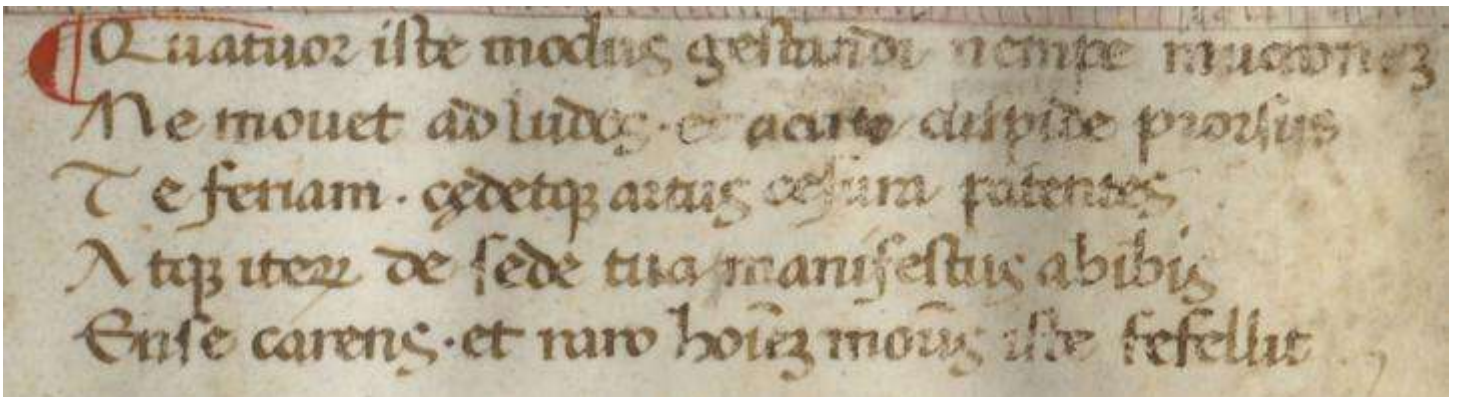 ¶ Quatuor iste modus gestandi nempe mucronez
Me mouet ad ludos · et acuto cuspide prorsus
Te feriam · cędetqꝫ artus cesura patentes
Atqꝫ iterꝝ de sede tua manifestus abibis
Ense carens · et raro hoiēz modus iste fefellit